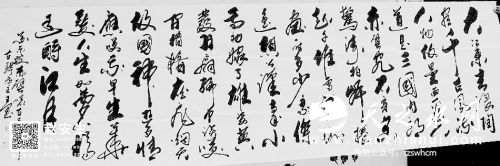 大江东去浪淘
尽千古风流
人物故垒西边人
道是三国周郎
赤壁乱石穿空
惊涛拍岸卷
起千堆雪江山如
画一时多少豪杰
遥想公瑾当年小
乔初嫁了雄姿英
发羽扇纶巾谈笑
间樯橹灰飞烟灭
故国神游多情
应笑我早生华
发人生如梦一尊
还酹江月
tzswhcm